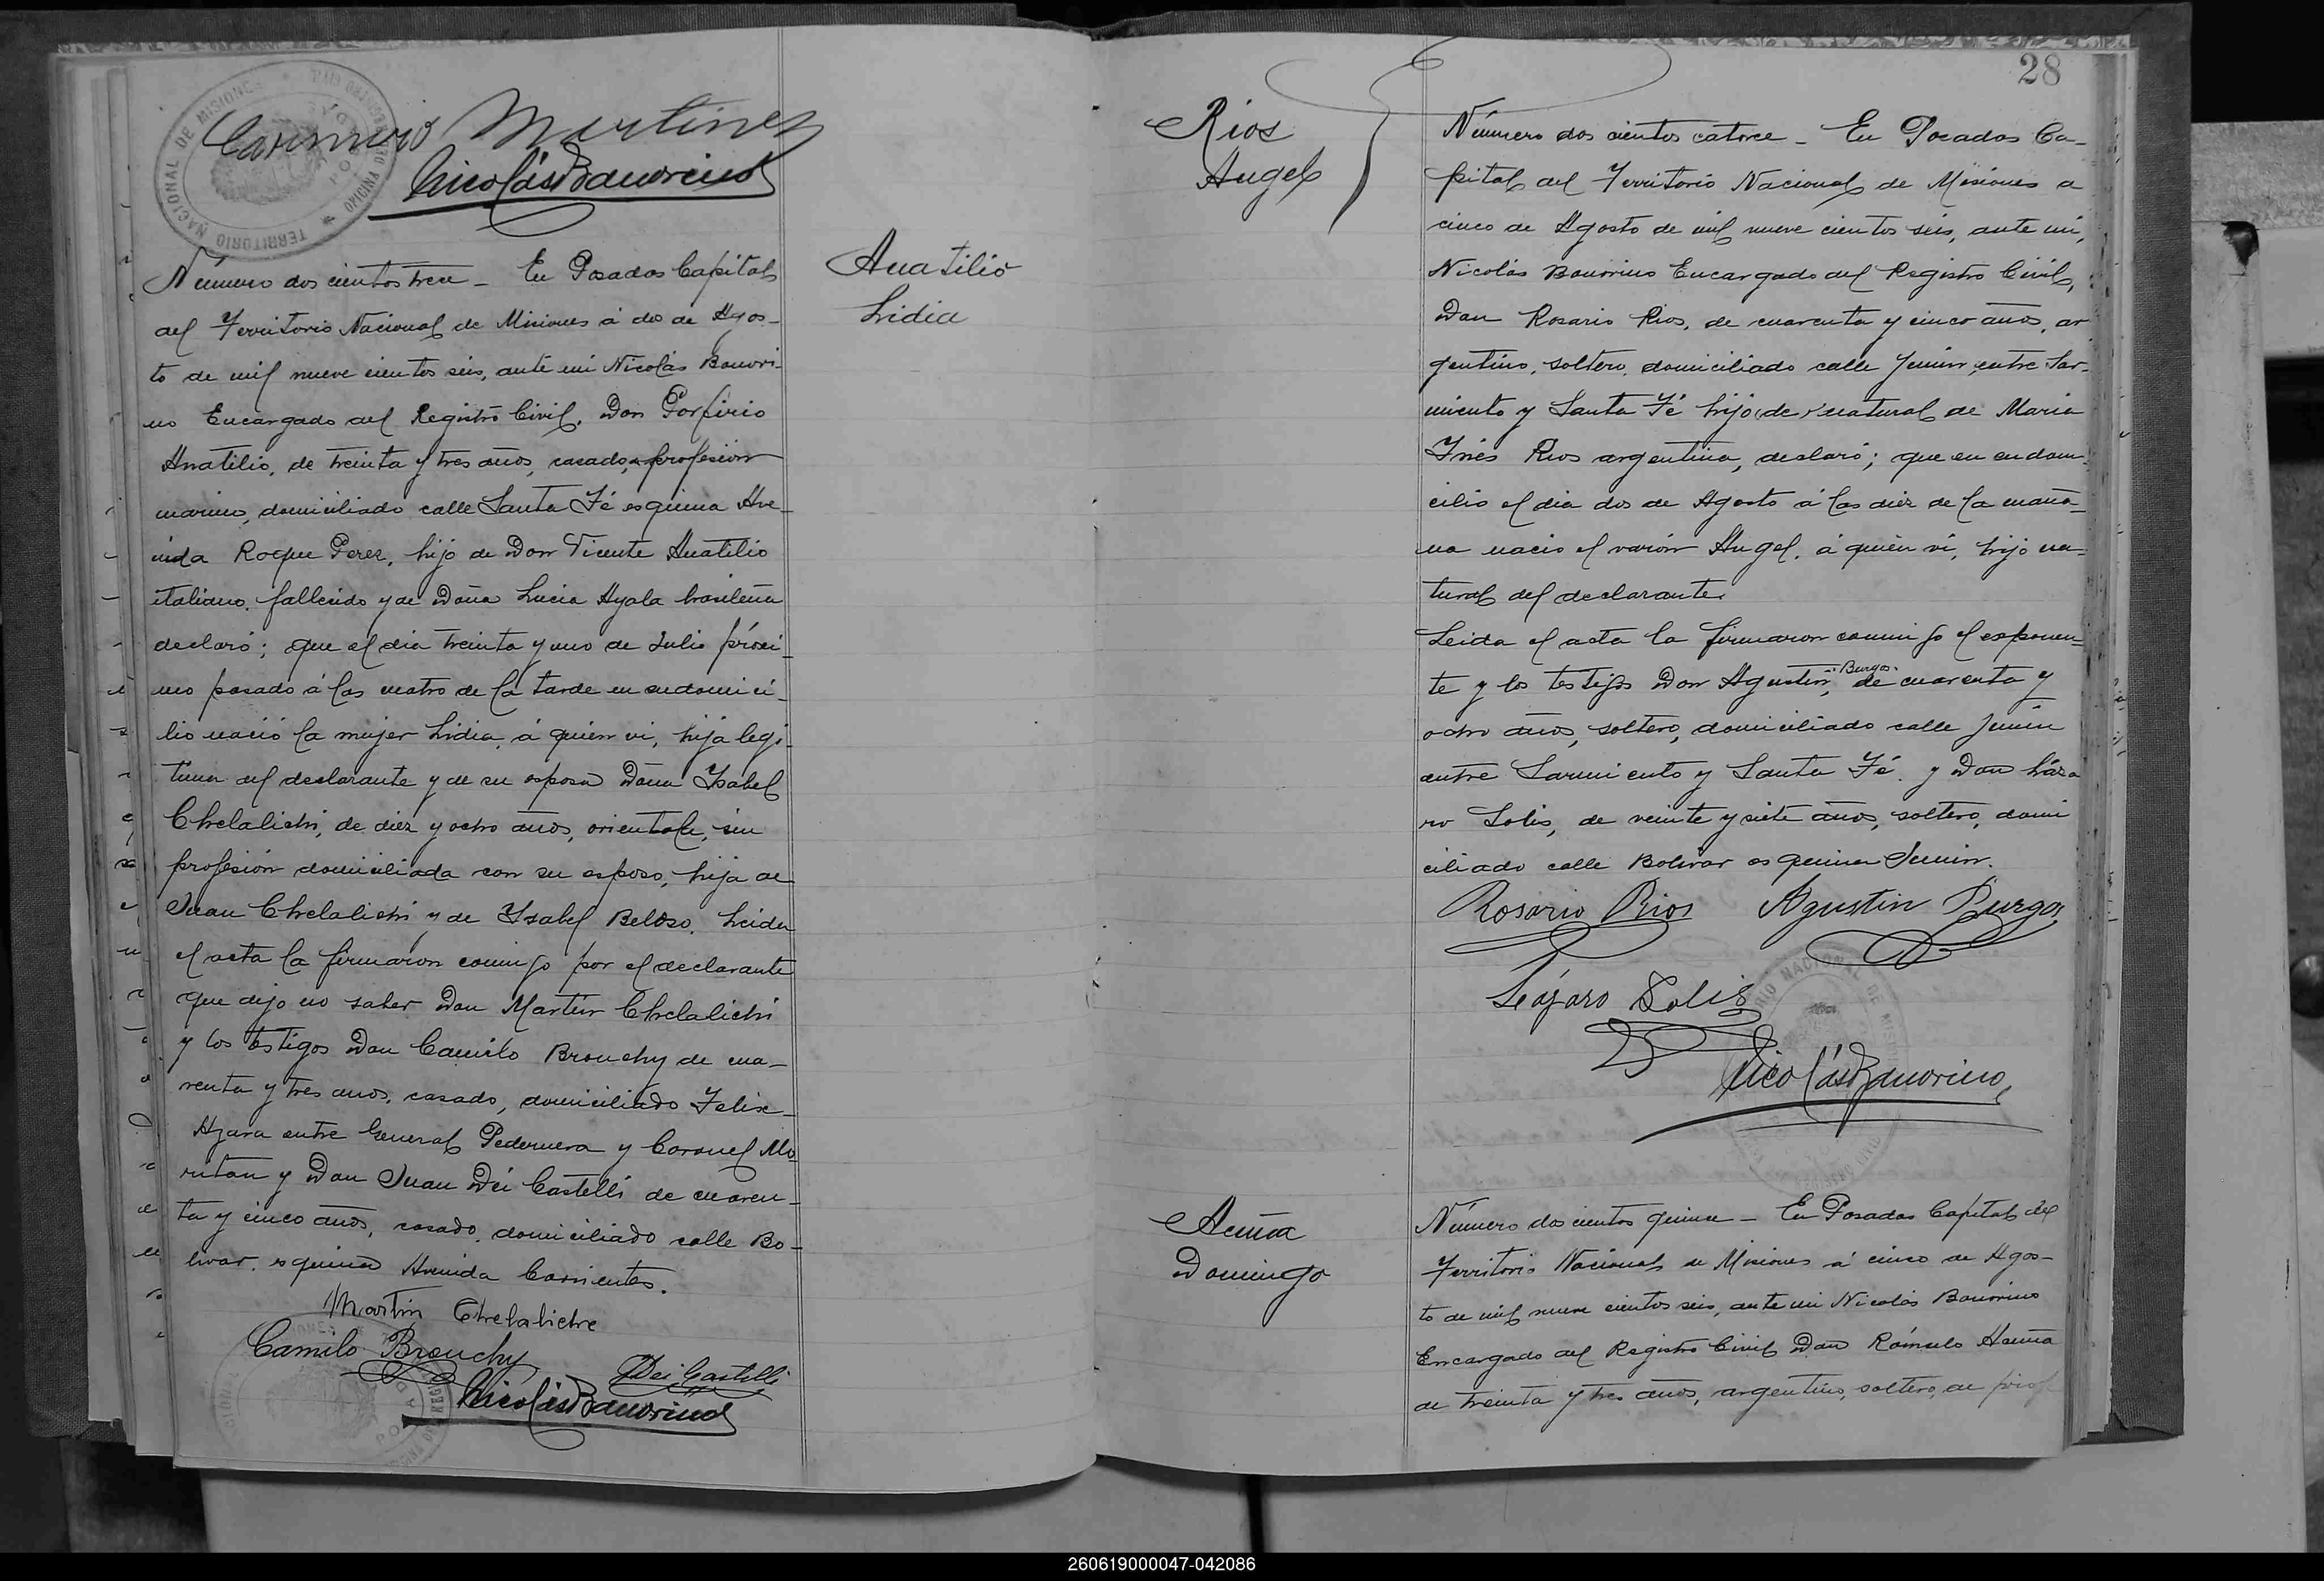 Casimiro Martinez
Nicolás Bauorino
Número dos cientos trece - En Posadas Capital
del Territorio Nacional de Misiones á dos de Agos-
to de mil nueve cientos seis, ante mi Nicolás Bauori-
no Encargado del Registro Civil. Don Porfirio
Anatilio, de treinta y tres años, casado, profesión
marino, domiciliado calle Santa Fé esquina Ave-
nida Roque Perez, hijo de Don Vicente Anatilio
italiano, fallecido y de Doña Lucia Ayala brasileña
declaró; que el dia treinta y uno de Julio próxi-
mo pasado á las cuatro de la tarde en su domici-
lio nació la mujer Lidia, á quién vi, hija legi-
tima del declarante y de su esposa Doña Ysabel
Chelalichi, de diez y ocho años, oriental, sin
profesión domiciliada con su esposo, hija de
Juan Chelalichi y de Ysabel Beloso. Leida
el acta la firmaron conmigo por el declarante
que dijo no saber Don Martin Chelalichi
y los testigos Don Camilo Brouchy de cua-
renta y tres anos, casado, domiciliado Felix
Azara entre General Pedernera y Coronel Mo-
ritan y Don Juan Dei Castelli de cuaren-
ta y cinco años, casado, domiciliado calle Bo-
livar, esquina Avenida Corrientes.
Martin Chelaliche
Camilo Brouchy
Dei Castelli
Nicolás Bauorino
Anatilio
Lidia
28
Rios
Angel
Número dos cientos catorce - En Posadas Ca-
pital del Territorio Nacional de Misiones a
cinco de Agosto de mil nueve cientos seis, ante mi,
Nicolás Bauorino Encargado del Registro Civil,
Don Rosario Rios, de cuarenta y cinco años, ar
gentino, soltero, domiciliado calle Junin, entre Sar-
miento y Santa Fé hijo (de) natural de Maria
Ynés Rios argentina, declaró; que en su domi-
cilio el dia dos de Agosto á las diez de la maña-
na nacio el varón Angel, á quién vi, hijo na-
tural del declarante.
Leida el acta la firmaron conmigo el exponen-
te y los testigos Don Agustin, Burgos de cuarenta y
ocho años, soltero, domiciliado calle Junin
entre Sarmiento y Santa Fé. y Don Láza
ro Solis, de veinte y siete años, soltero, domi
ciliado calle Bolivar esquina Junin.
Rosario Rios Agustin Burgos
Lázaro Solis
Nicolás Bauorino
Acuña
Domingo
Número dos cientos quince - En Posadas Capital del
Territorio Nacional de Misiones á cinco de Agos-
to de mil nueve cientos seis, ante mi Nicolás Bauorino
Encargado del Registro Civil Don Rómulo Acuña
de treinta y tres años, argentino, soltero, de prof
260619000047-042086